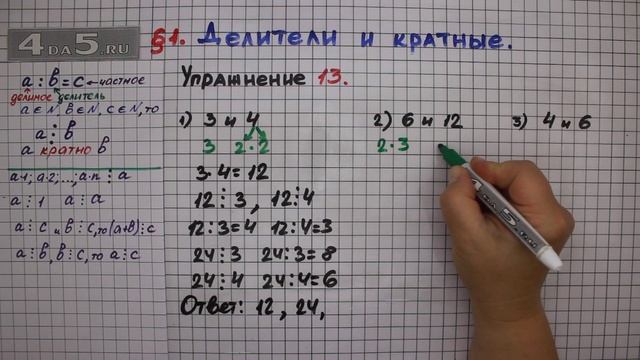 4DA5.RU
§1. Делители и кратные.
Упражнение 13.
a : b = c ← частное
делимое делитель
a ∈ N, b ∈ N, c ∈ N, то
a ⋮ b
a кратно b
a·1; a·2; ...; a·n ⋮ a
a ⋮ 1 a ⋮ a
a ⋮ c и b ⋮ c, то (a+b) ⋮ c
a ⋮ b, b ⋮ c, то a ⋮ c
1) 3 и 4
3 2·2
3·4=12
12 ⋮ 3, 12 ⋮ 4
12:3=4 12:4=3
24 ⋮ 3 24:3=8
24 ⋮ 4 24:4=6
Ответ: 12, 24,
2) 6 и 12
2·3
3) 4 и 6
4DA5.RU